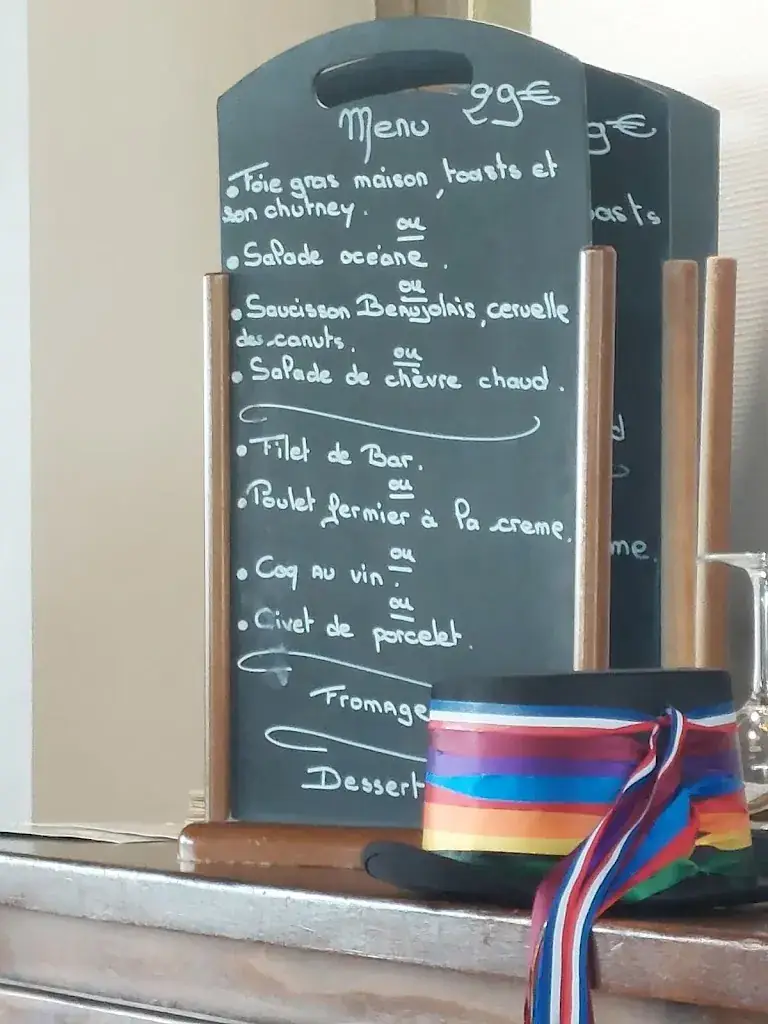 Menu 29€
• Foie gras maison, toasts et
son chutney.
ou
• Salade océane.
ou
• Saucisson Beaujolais, cervelle
des canuts.
ou
• Salade de chèvre chaud.
• Filet de Bar.
ou
• Poulet fermier à la creme.
ou
• Coq au vin.
ou
• Civet de porcelet.
Fromage
Dessert
9€
oasts
d
me.